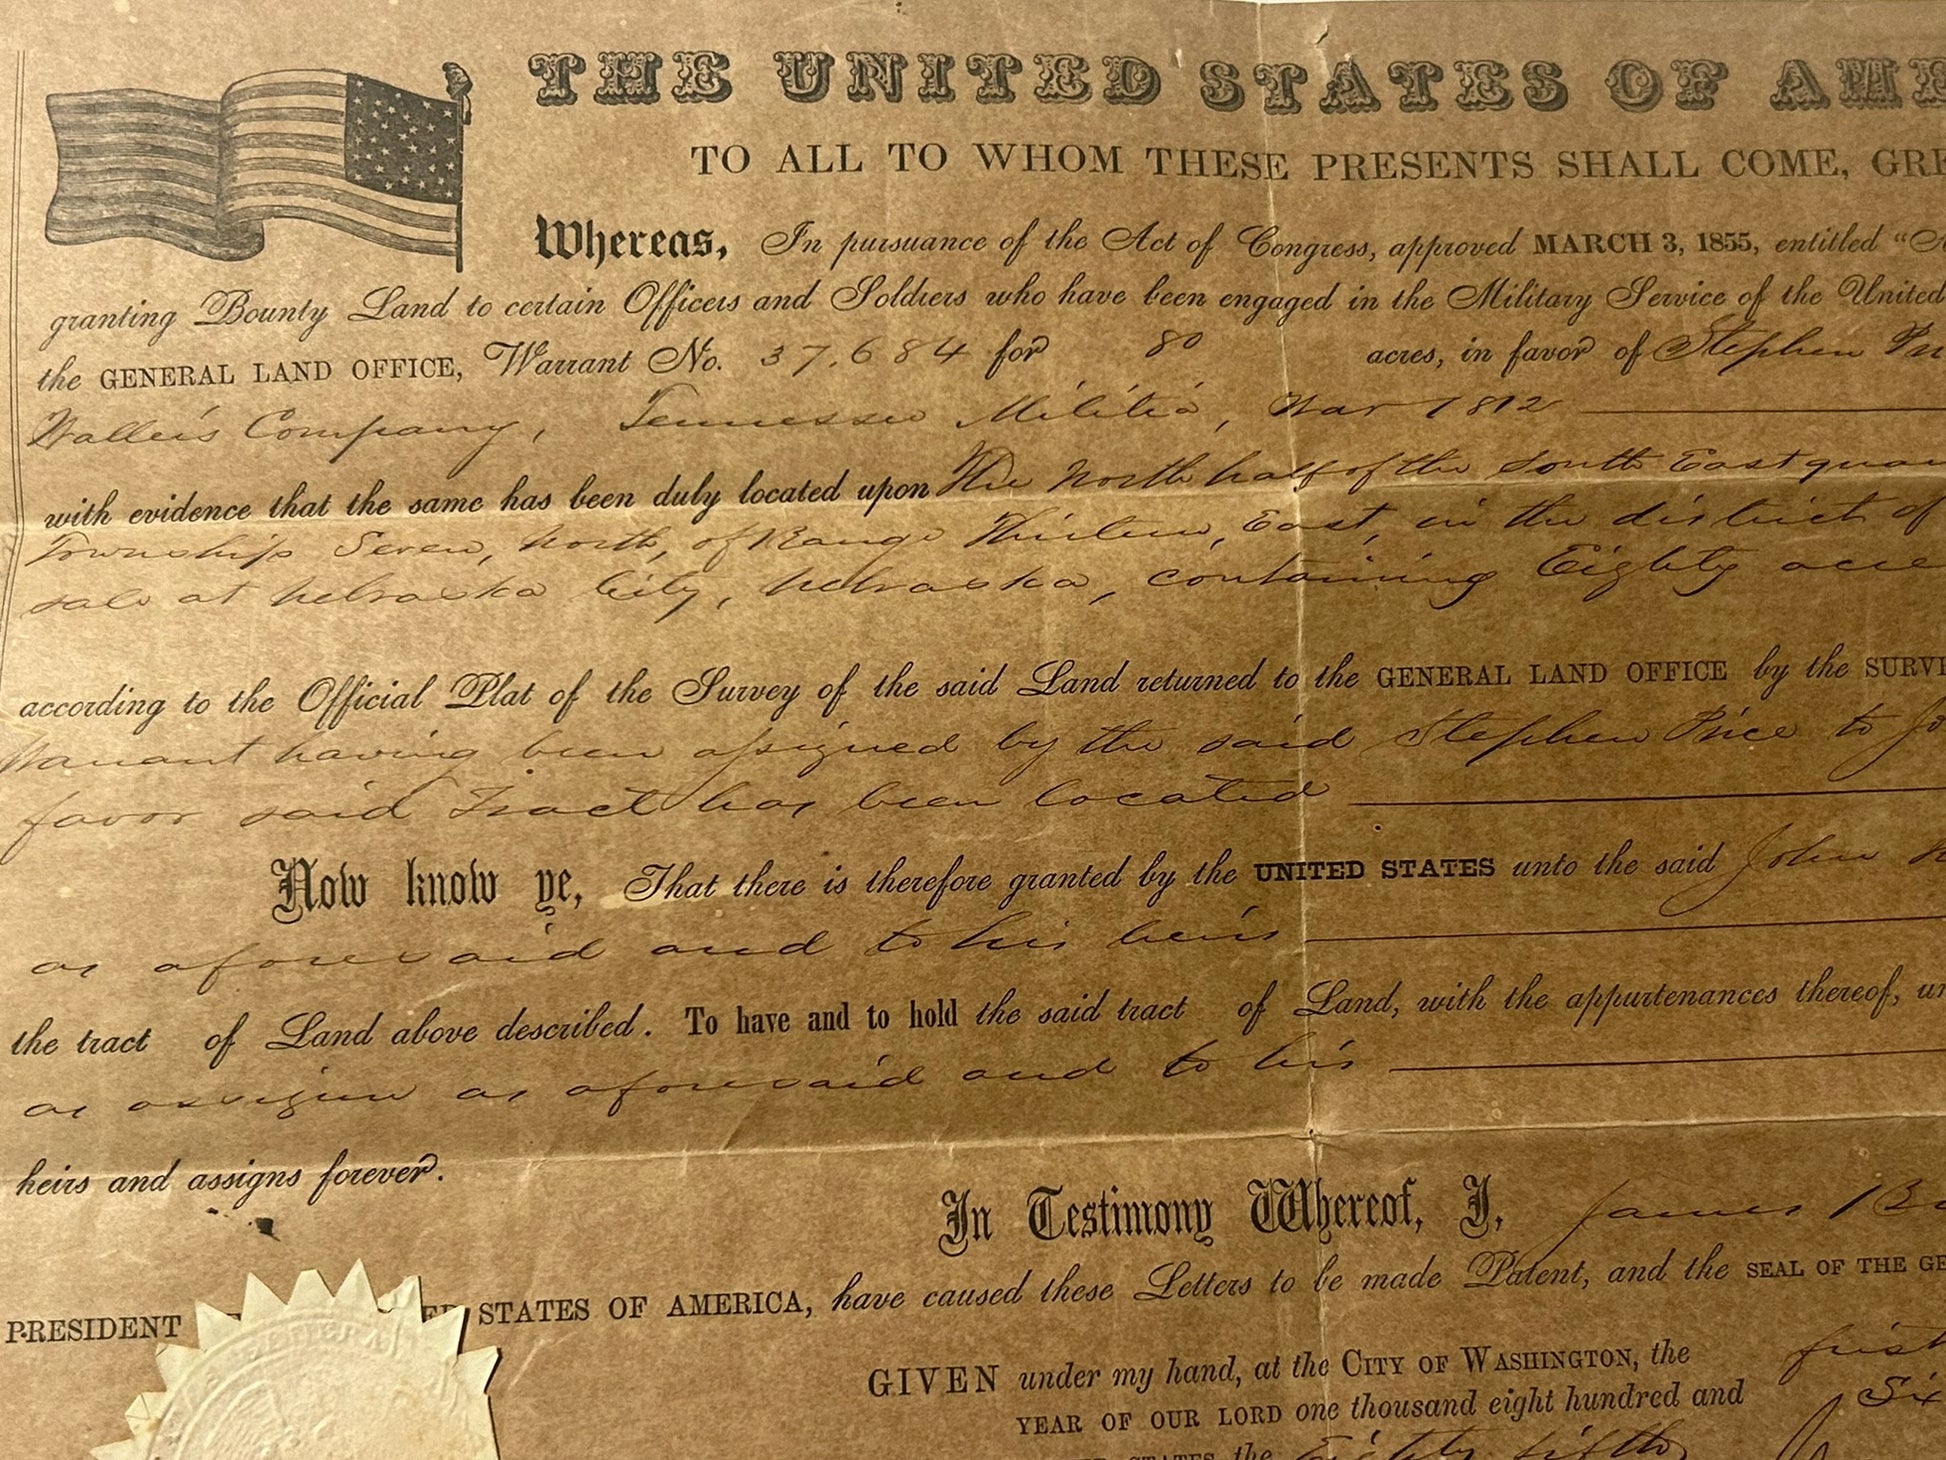 THE UNITED STATES OF AME
TO ALL TO WHOM THESE PRESENTS SHALL COME, GRE
Whereas, In pursuance of the Act of Congress, approved MARCH 3, 1855, entitled "A
granting Bounty Land to certain Officers and Soldiers who have been engaged in the Military Service of the United
the GENERAL LAND OFFICE, Warrant No. 37,684 for 80 acres, in favor of Stephen Pri
Company, Tennessee Militia, War 1812
with evidence that the same has been duly located upon The North half of the South East quar
Township Seven, North, of Range Thirteen, East, in the district of
sale at Nebraska City, Nebraska, containing Eighty acre
according to the Official Plat of the Survey of the said Land returned to the GENERAL LAND OFFICE by the SURVE
Warrant having been assigned by the said Stephen Price to Jo
favor said Tract has been located
Now know ye, That there is therefore granted by the UNITED STATES unto the said John
as aforesaid and to his heirs
the tract of Land above described. To have and to hold the said tract of Land, with the appurtenances thereof, un
as assignee as aforesaid and to his
heirs and assigns forever.
In Testimony Whereof, I, James Bu
PRESIDENT ED STATES OF AMERICA, have caused these Letters to be made Patent, and the SEAL OF THE GE
GIVEN under my hand, at the CITY OF WASHINGTON, the first
YEAR OF OUR LORD one thousand eight hundred and Six
STATES the Eighty fifth